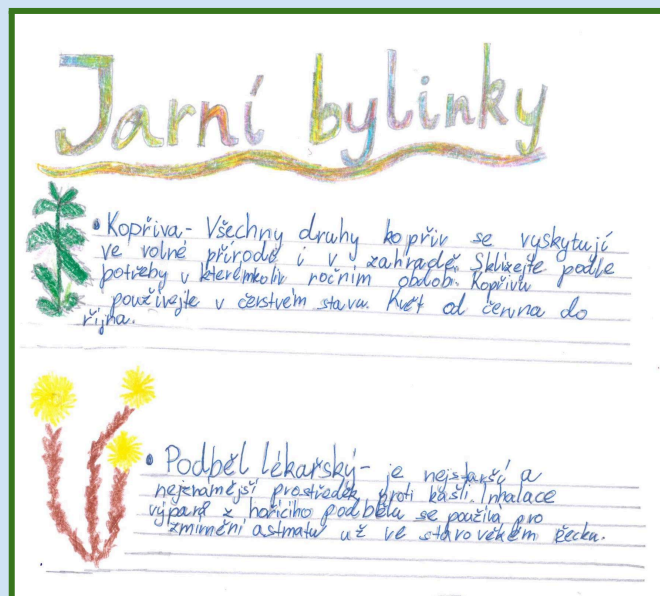 Jarní bylinky
• Kopřiva- Všechny druhy kopřiv se vyskytují
ve volné přírodě i v zahradě. Sklízejte podle
potřeby v kterémkoliv ročním období. Kopřivu
používejte v čerstvém stavu. Květ od června do
října.
• Podběl lékařský- je nejstarší a
nejznámější prostředek proti kašli. Inhalace
výparů z hořícího podbělu se používá pro
zmírnění astmatu už ve starověkém řecku.